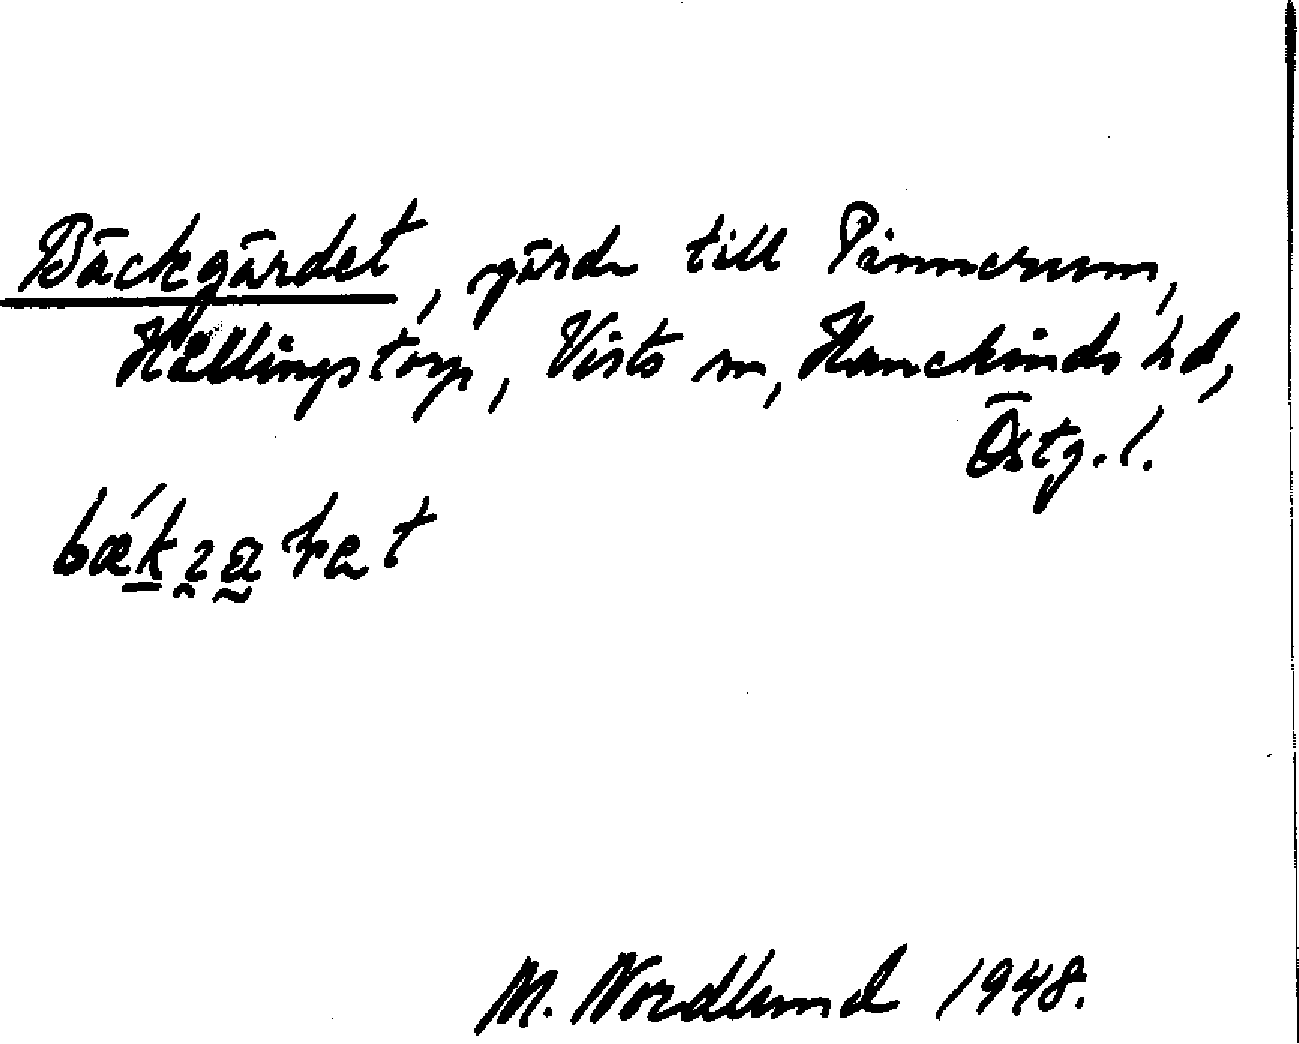 Bäckgärdet, gärde till Pinnerum,
Hällingstorp, Vists sn, Hanekinds hd,
Östg. l.
M. Nordlund 1948.